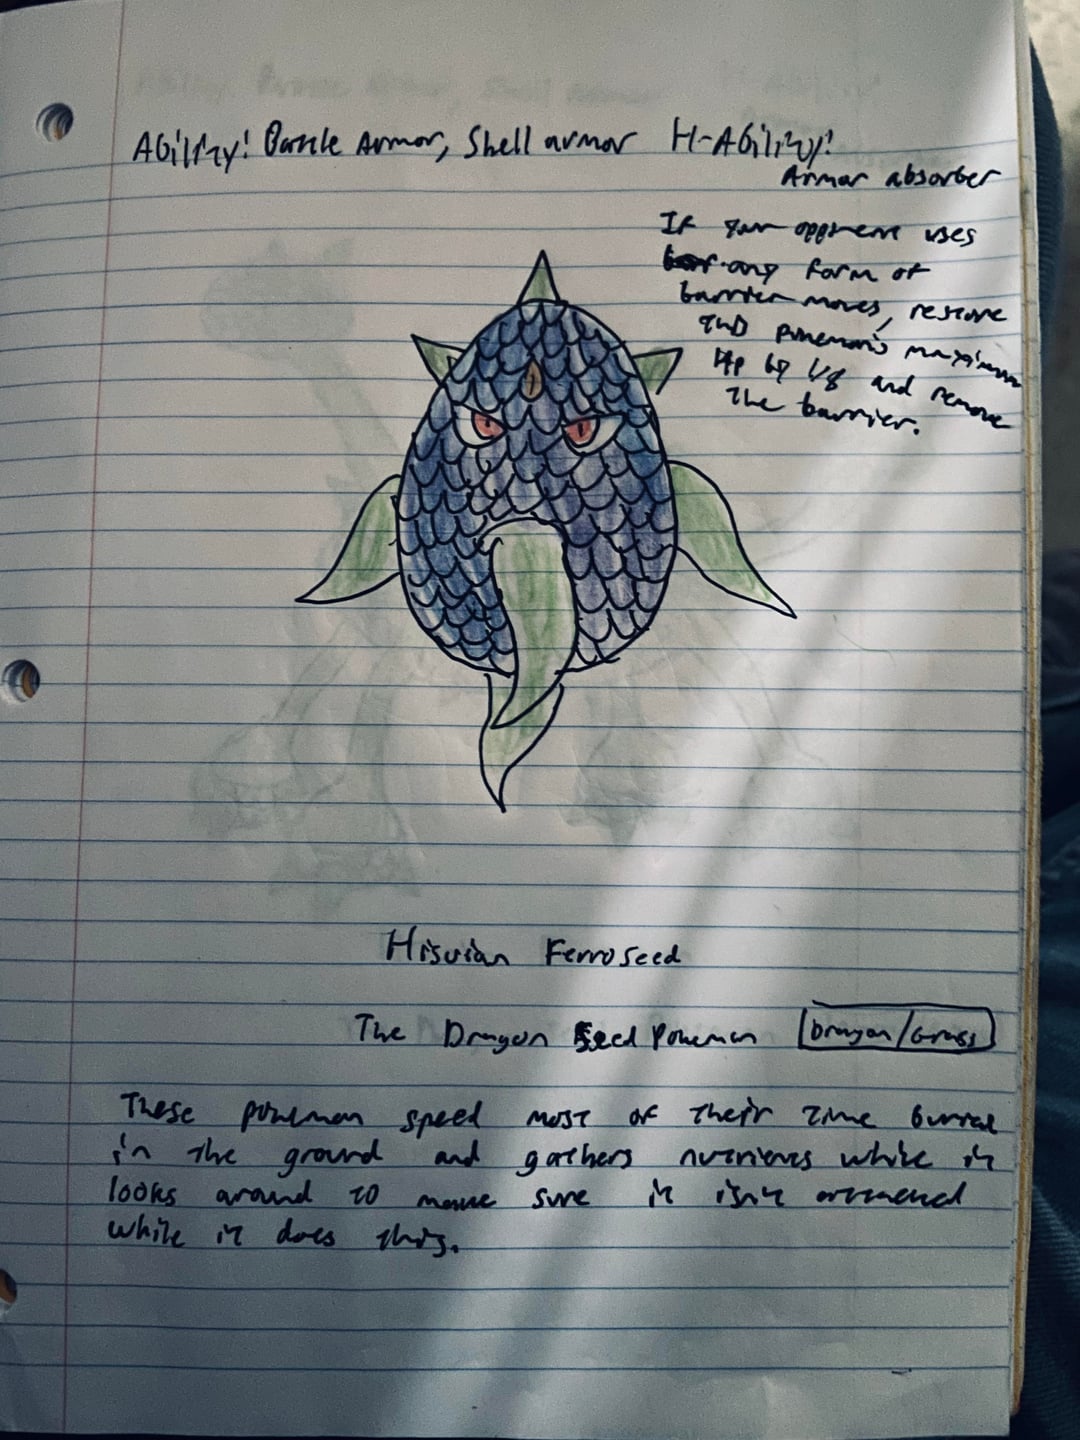 Ability: Battle Armor, Shell armor H-Ability:
Armor absorber
If your opponent uses
any form of
barrier moves, restore
this pokemon's maximum
Hp by 1/8 and remove
the barrier.
Hisuian Ferroseed
The Dragon Seed Pokemon Dragon/Grass
These pokemon speed most of their time burried
in the ground and gathers nutrients while it
looks around to make sure it isn't attacked
while it does this.